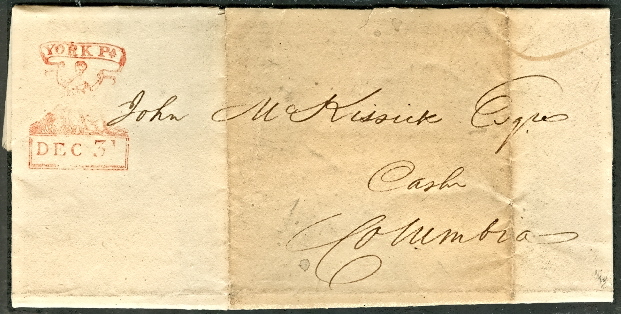 YORK Pa
DEC 31
John McKissick Esqre
Cashr
Columbia